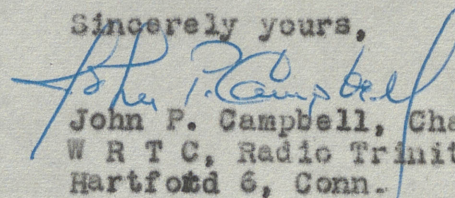 Sincerely yours,
John P. Campbell
John P. Campbell, Cha
W R T C, Radio Trinit
Hartford 6, Conn.